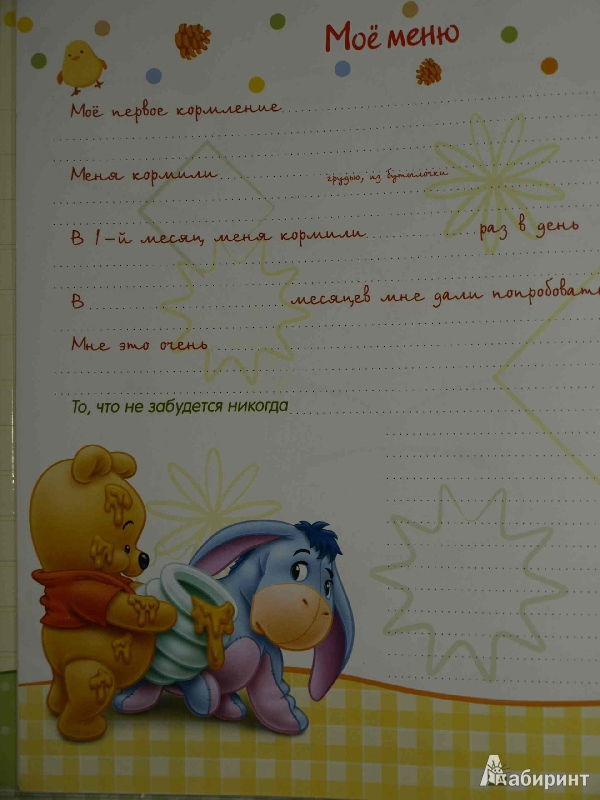 Моё меню
Моё первое кормление
Меня кормили
грудью, из бутылочки
В 1-й месяц меня кормили раз в день
В месяцев мне дали попробовать
Мне это очень
То, что не забудется никогда
Лабиринт